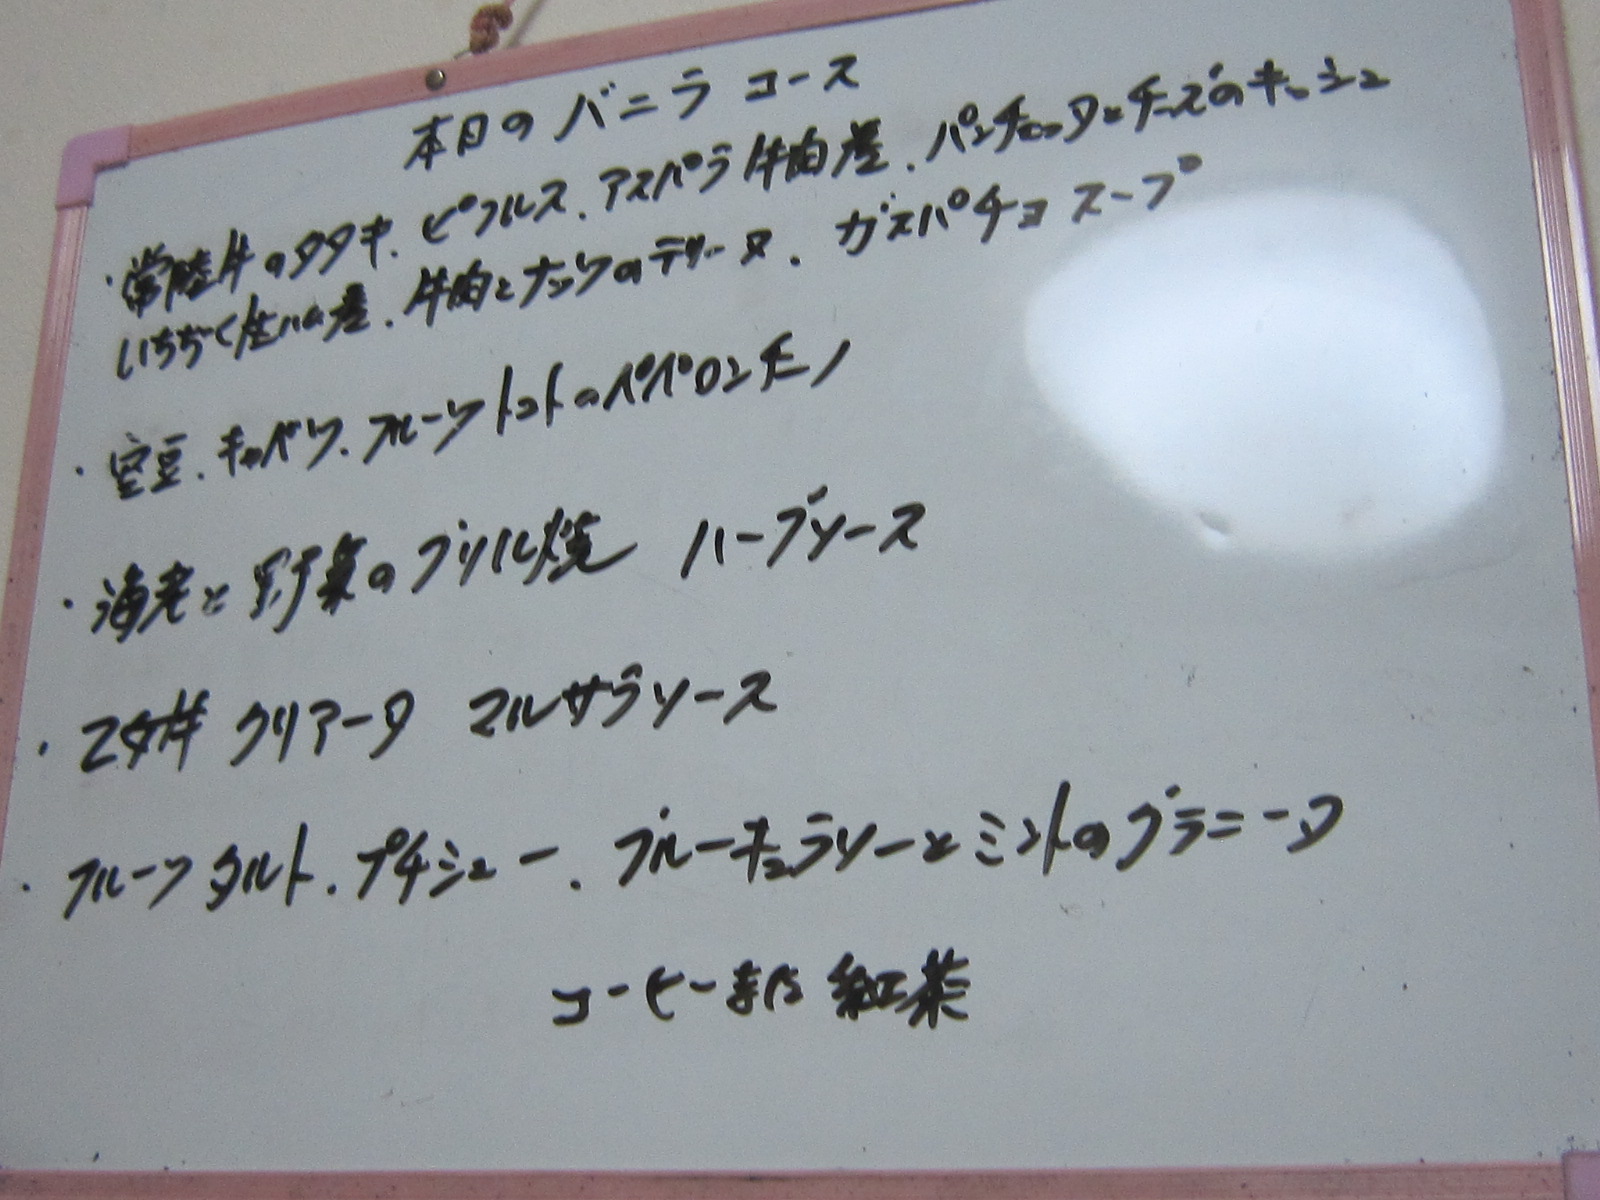 本日のバニラコース
・常陸牛のタタキ、ピクルス、アスパラ牛肉巻、パンチェッタとチーズのキッシュ
いちぢく生ハム巻、牛肉とナッツのテリーヌ、ガスパチョスープ
・空豆、キャベツ、フルーツトマトのペペロンチーノ
・海老と野菜のグリル焼 ハーブソース
・乙女牛 クリアータ マルサラソース
・フルーツタルト、プチシュー、ブルーキュラソーとミントのグラニータ
コーヒーまたは紅茶